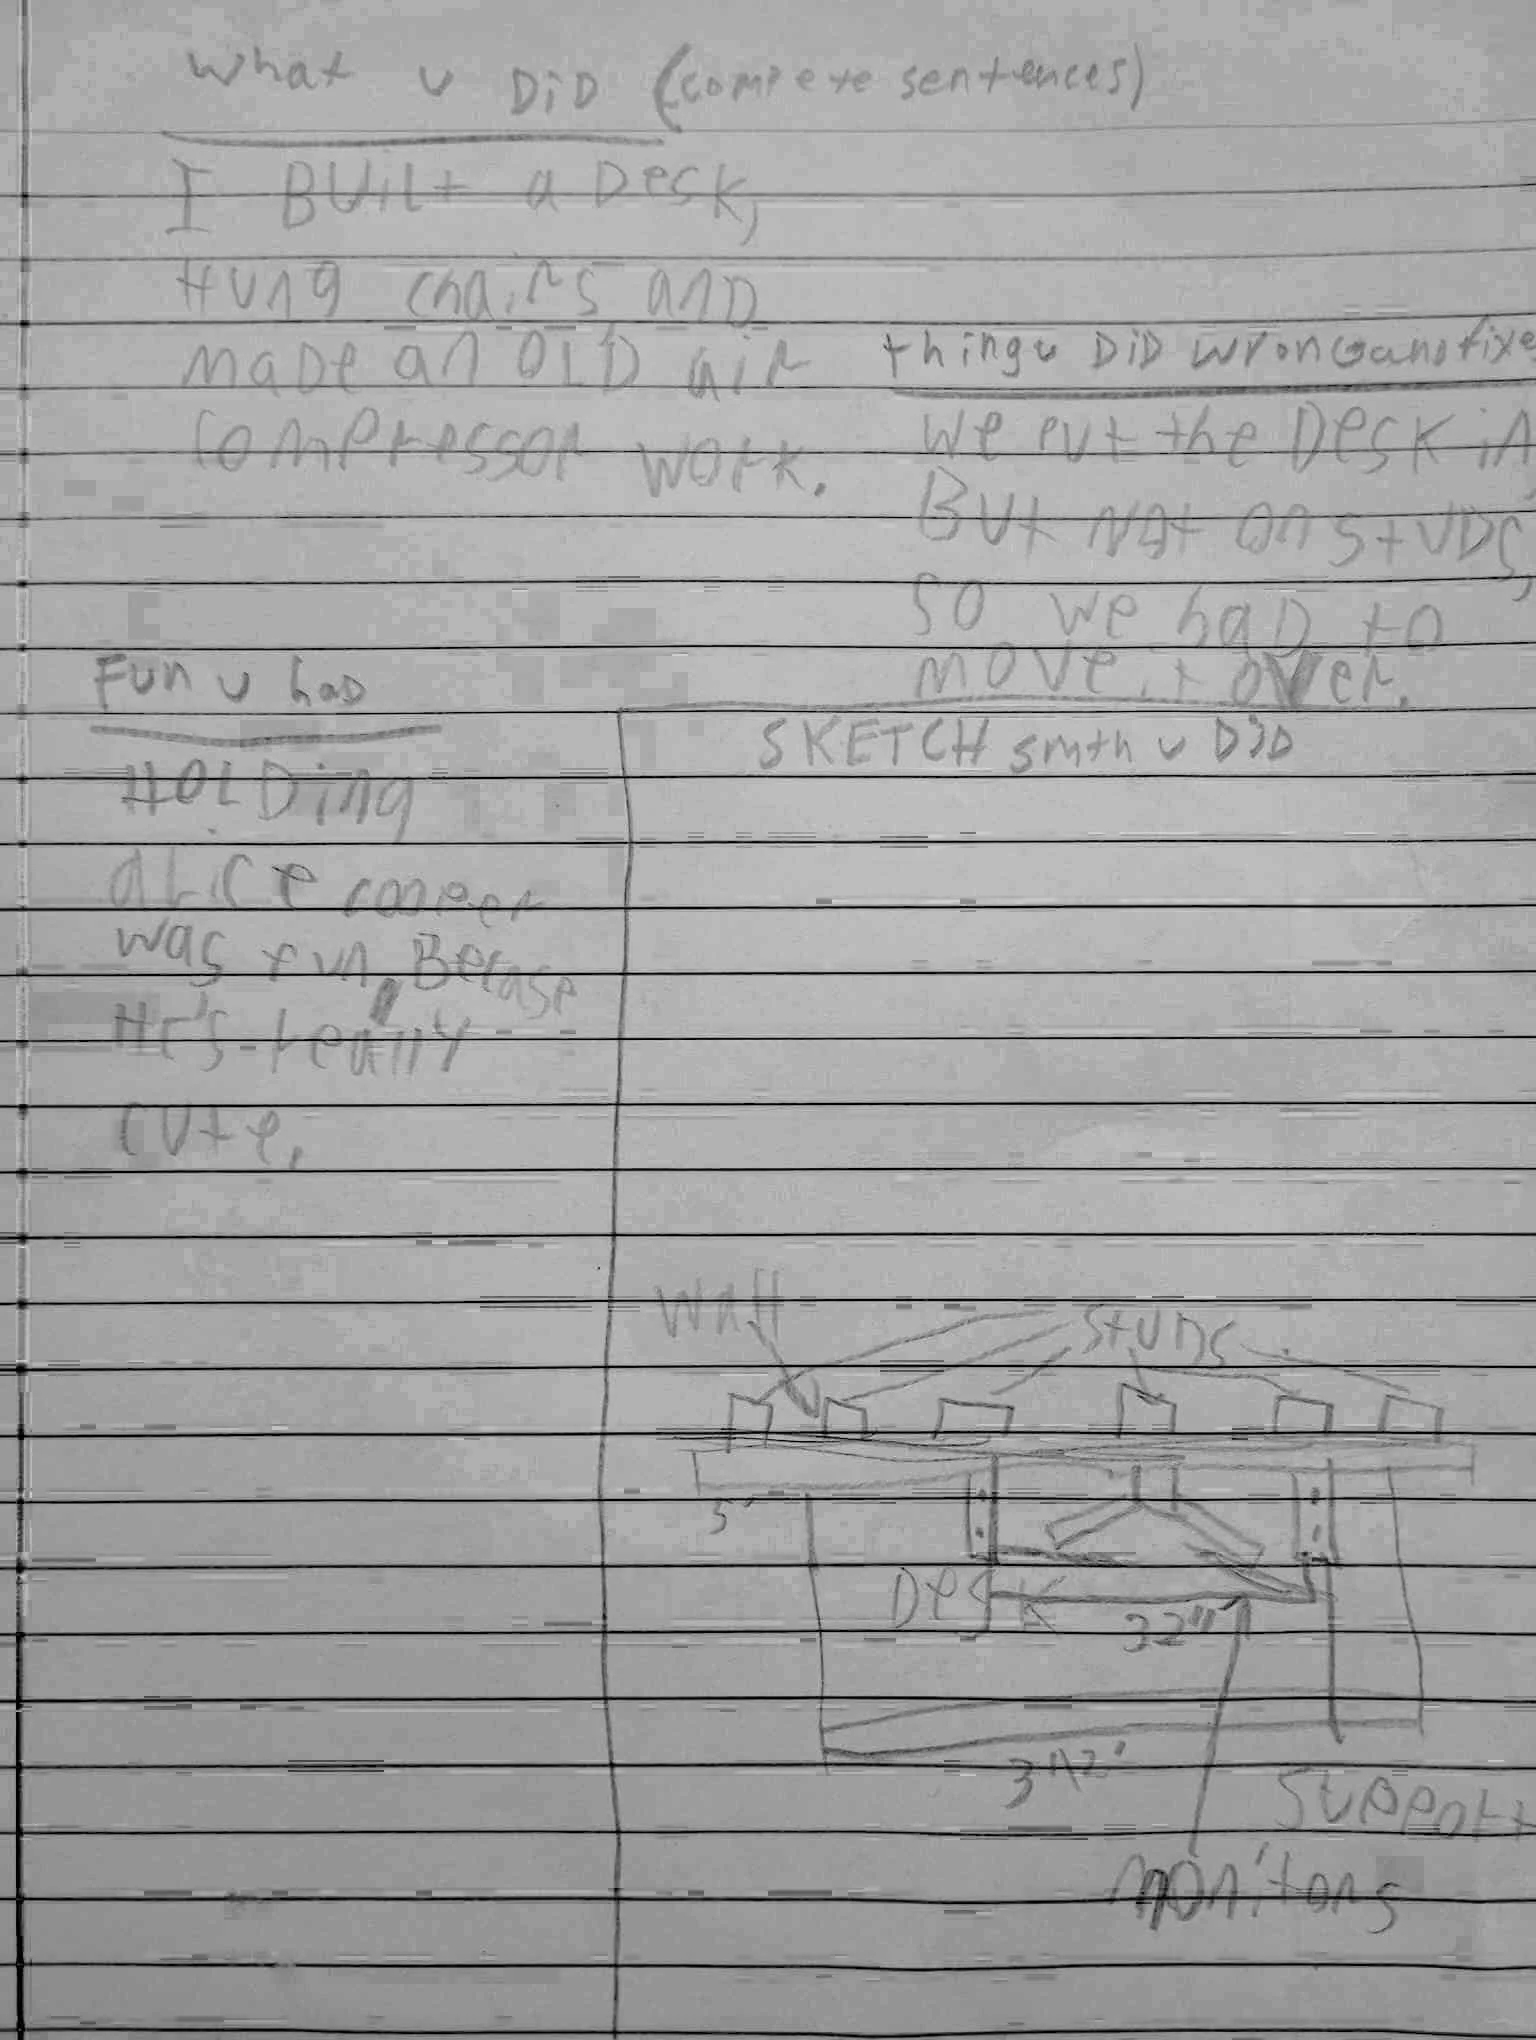 what u DiD (compete sentences)
I BUiLt a Desk,
Hung chairs anD
maDe an OLD air
compressor work.
thing u DiD wrong and fixe
We put the Desk in,
But Not on stUDs,
so we haD to
move it over.
Fun u haD
HOLDing
aLice cooper
was fun, Becase
He's really
cute.
SKETCH smth u DiD
Wall
stuDs
5'
Desk
32"
3 1/2'
Support
monitors